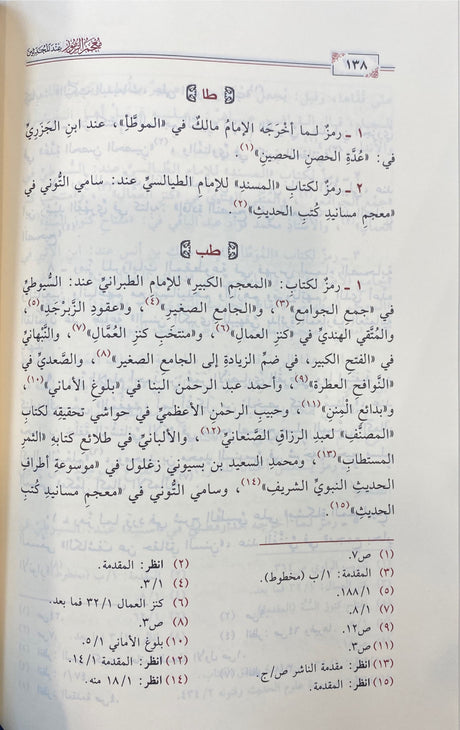 معجم الرموز عند المحدثين
١٣٨
طا
١ ـ رمزٌ لـما أخْرَجَه الإمامُ مالكٌ في «الموطَّإ»، عند ابنِ الجَزَرِيِّ
في: «عُدَّةِ الحصنِ الحصينِ»(١).
٢ ـ رمزٌ لكتابِ: «المسندِ» للإمامِ الطيالسيِّ عند: سامي التُّوني في
«معجمِ مسانيدِ كُتبِ الحديثِ»(٢).
طب
١ ـ رمزٌ لكتابِ: «المعجمِ الكبيرِ» للإمامِ الطبرانيِّ عند: السُّيوطيِّ
في «جمعِ الجوامعِ»(٣)، و«الجامعِ الصغيرِ»(٤)، و«عقودِ الزَّبرْجَدِ»(٥)،
والمُتَّقي الهنديِّ في «كنزِ العمالِ»(٦)، و«منتخَبِ كنزِ العُمَّالِ»(٧)، والنَّبْهانيِّ
في «الفتحِ الكبيرِ، في ضمِّ الزيادةِ إلى الجامعِ الصغيرِ»(٨)، والصَّعديِّ في
«النَّوافحِ العطرةِ»(٩)، وأحمد عبد الرحمٰن البنا في «بلوغِ الأماني»(١٠)،
و«بدائعِ المِننِ»(١١)، وحبيبِ الرحمٰنِ الأعظميِّ في حواشي تحقيقِه لكتابِ
«المصنَّفِ» لعبدِ الرزاقِ الصَّنعانيِّ(١٢)، والألبانيِّ في طلائعِ كتابِه «الثمرِ
المستطابِ»(١٣)، ومحمدِ السعيد بن بسيوني زغلول في «موسوعةِ أطرافِ
الحديثِ النبويِّ الشريفِ»(١٤)، وسامي التُّوني في «معجمِ مسانيدِ كُتبِ
الحديثِ»(١٥).
(١) ص٧.
(٢) انظر: المقدمة.
(٣) المقدمة: ١/ب (مخطوط).
(٤) ٣/١.
(٥) ١٨٨/١.
(٦) كنز العمال ٣٢/١ فما بعد.
(٧) ٨/١.
(٨) ص٣.
(٩) ص١٢.
(١٠) بلوغ الأماني ٥/١.
(١١) ص٣.
(١٢) انظر: المقدمة ١٤/١.
(١٣) انظر: مقدمة الناشر ص/ج.
(١٤) انظر: ١٨/١ منه.
(١٥) انظر: المقدمة.